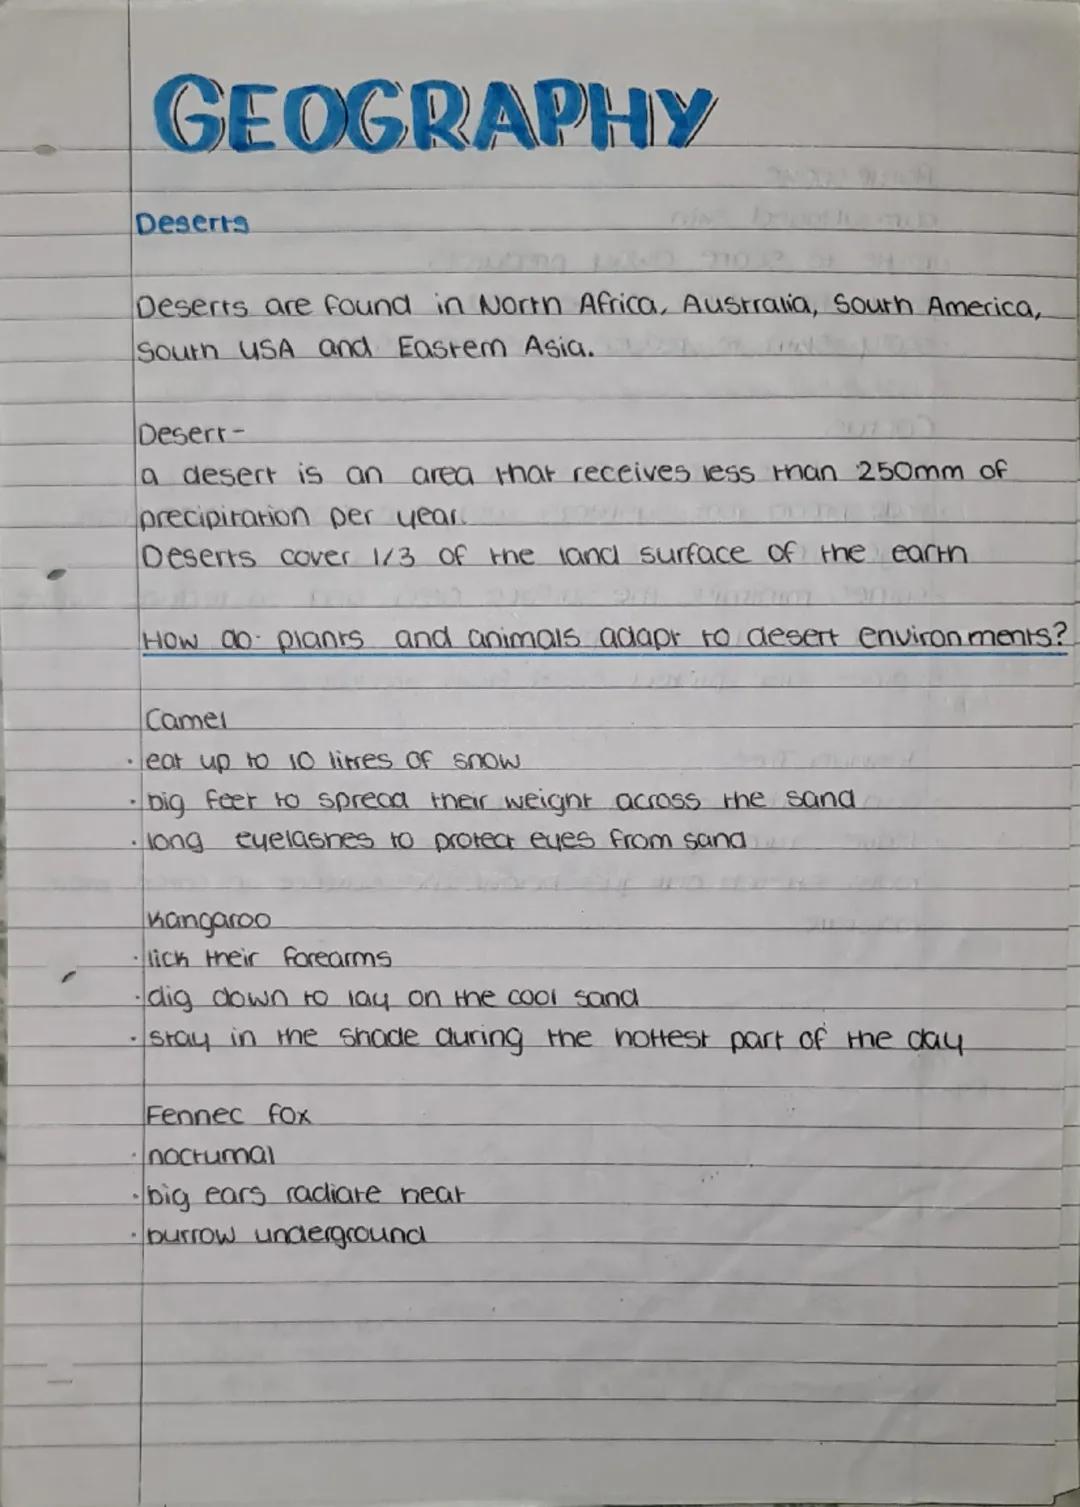 GEOGRAPHY
Deserts
Deserts are found in North Africa, Australia, South America,
South USA and Eastern Asia.
Desert-
a desert is an area that receives less than 250mm of
precipitation per year.
Deserts cover 1/3 of the land surface of the earth
How do plants and animals adapt to desert environments?
Camel
· eat up to 10 litres of snow
· big feet to spread their weight across the sand
· long eyelashes to protect eyes from sand
Kangaroo
· lick their forearms
· dig down to lay on the cool sand
· stay in the shade during the hottest part of the day
Fennec fox
· nocturnal
· big ears radiate heat
· burrow underground